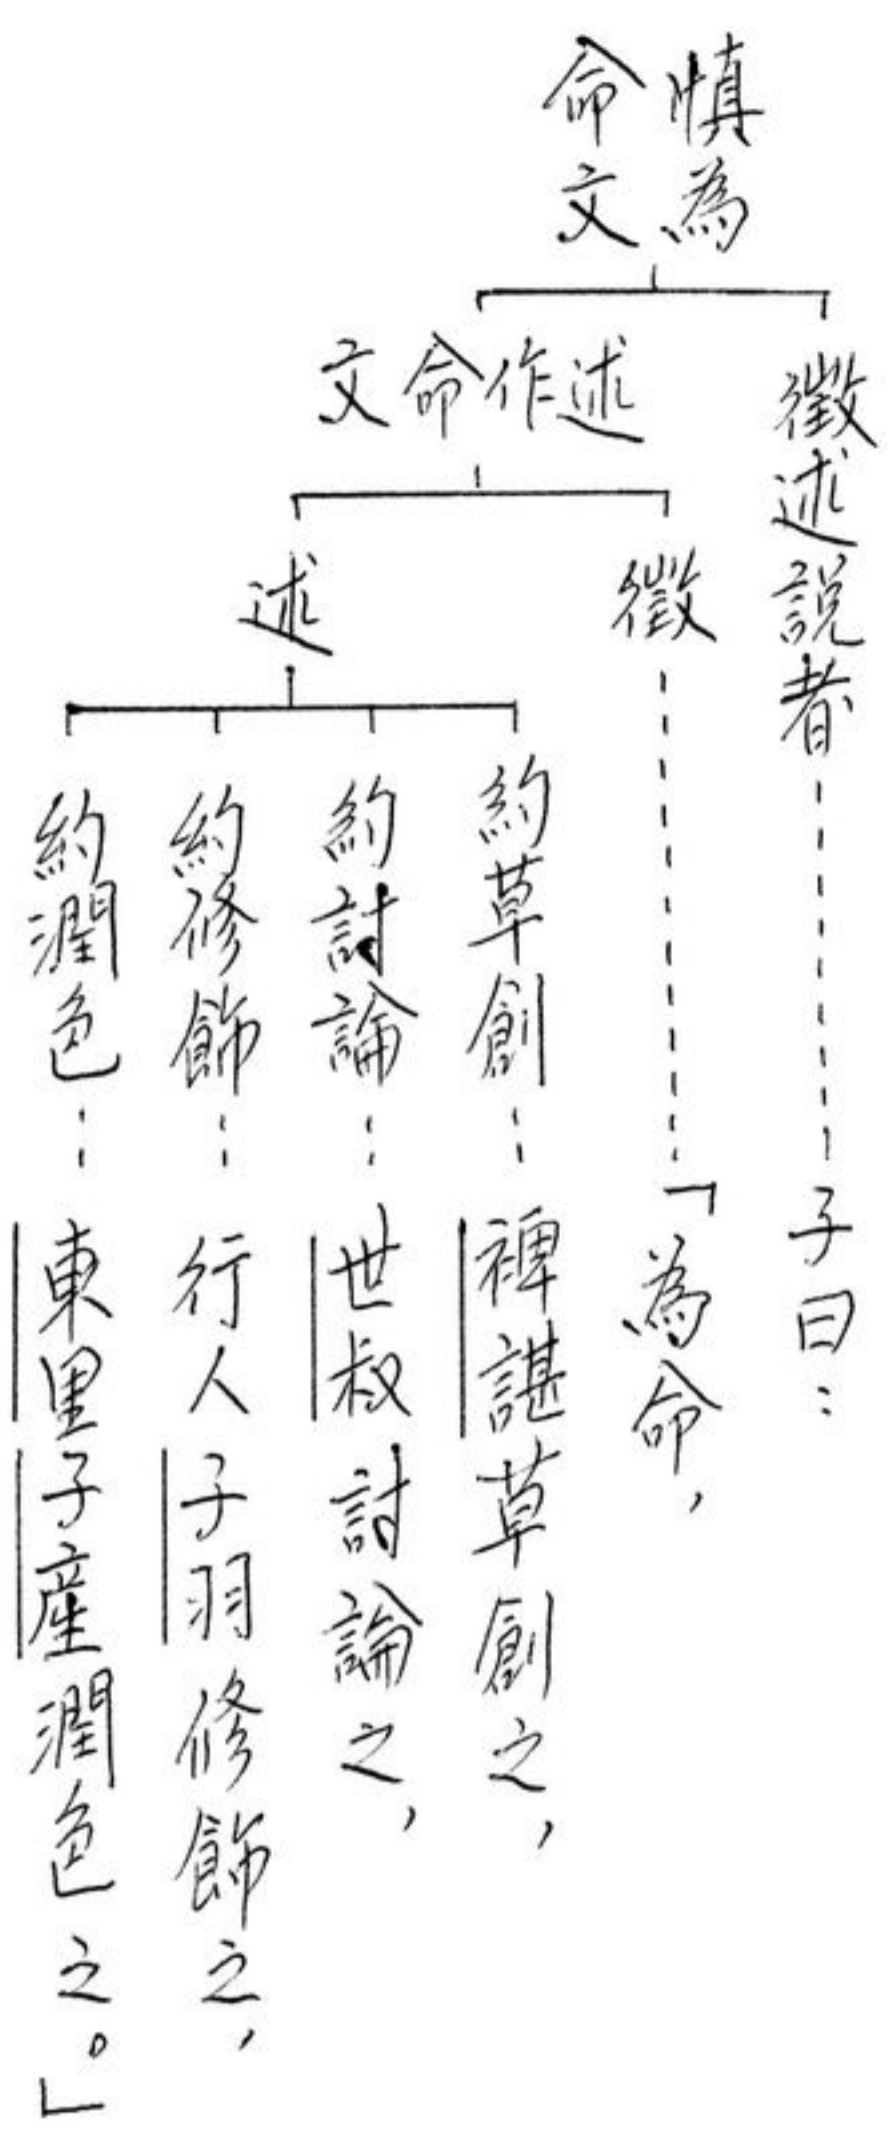 慎為
命文
徵述說者……子曰：
述作命文
徵……「為命，
述
約草創…裨諶草創之，
約討論…世叔討論之，
約修飾…行人子羽修飾之，
約潤色…東里子產潤色之。」